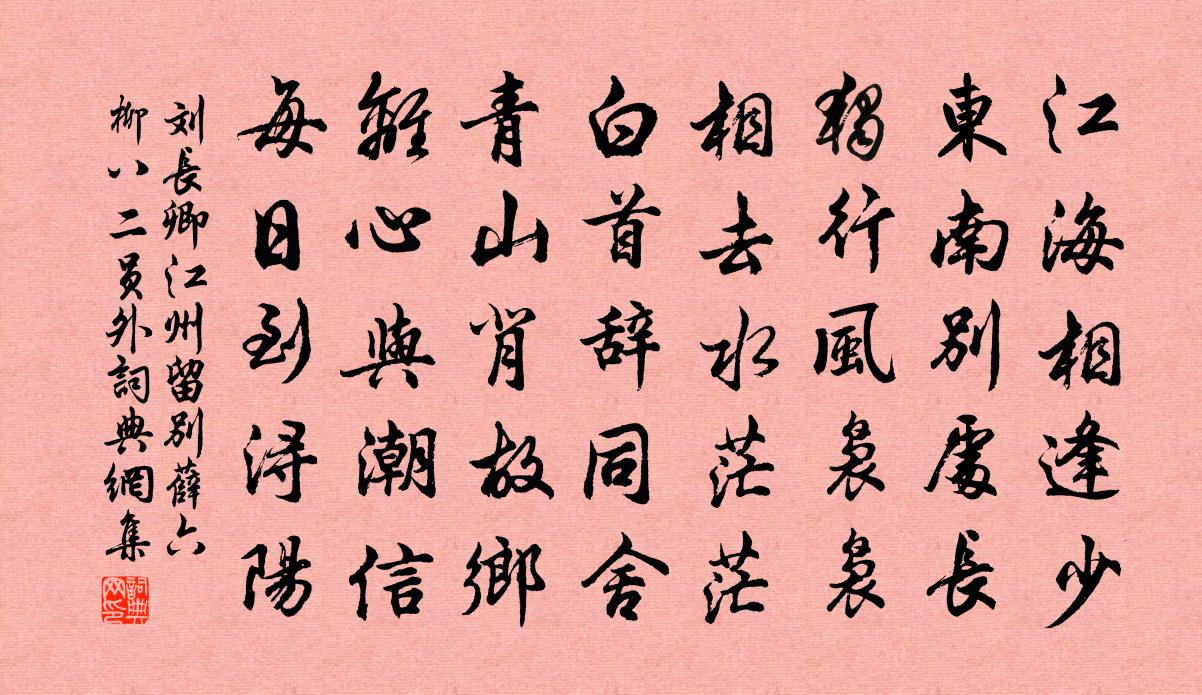 江海相逢少
東南别處長
獨行風袅袅
相去水茫茫
白首辞同舍
青山背故鄉
離心與潮信
每日到浔陽
刘長卿江州留别薛六
柳八二员外詞典網集
詞典网印